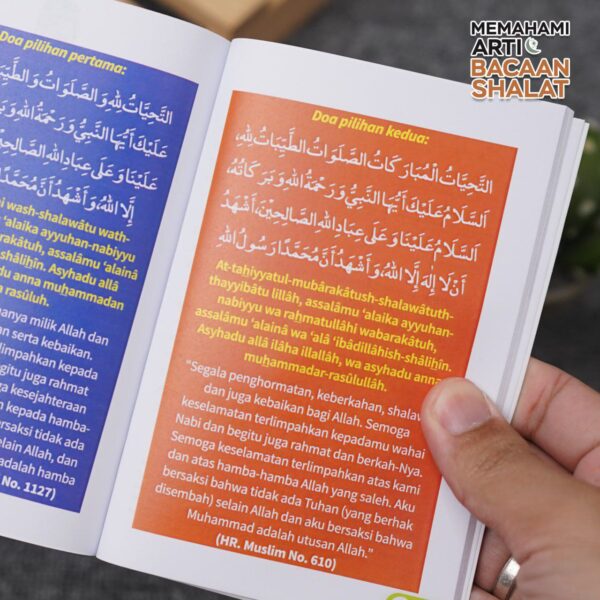 MEMAHAMI
ARTI
BACAAN
SHALAT
Doa pilihan pertama:
التَّحِيَّاتُ لِلّٰهِ وَالصَّلَوَاتُ وَالطَّيِّبَ
عَلَيْكَ أَيُّهَا النَّبِيُّ وَرَحْمَةُ اللّٰهِ وَبَرَ
عَلَيْنَا وَعَلَى عِبَادِ اللّٰهِ الصَّالِحِيْنَ
إِلَّا اللّٰهُ، وَأَشْهَدُ أَنَّ مُحَمَّدًا
wash-shalawâtu wath-
‘alaika ayyuhan-nabiyyu
arakâtuh, assalâmu ‘alainâ
shâliḥîn. Asyhadu allâ
du anna muḥammadan
rasûluh.
anya milik Allah dan
an serta kebaikan.
limpahkan kepada
gitu juga rahmat
a kesejahteraan
n kepada hamba-
ersaksi tidak ada
elain Allah, dan
adalah hamba
No. 1127)
Doa pilihan kedua:
التَّحِيَّاتُ الْمُبَارَكَاتُ الصَّلَوَاتُ الطَّيِّبَاتُ لِلّٰهِ،
اَلسَّلَامُ عَلَيْكَ أَيُّهَا النَّبِيُّ وَرَحْمَةُ اللّٰهِ وَبَرَكَاتُهُ،
اَلسَّلَامُ عَلَيْنَا وَعَلَى عِبَادِ اللّٰهِ الصَّالِحِيْنَ، أَشْهَدُ
أَنْ لَا إِلٰهَ إِلَّا اللّٰهُ، وَأَشْهَدُ أَنَّ مُحَمَّدًا رَسُوْلُ اللّٰهِ
At-taḥiyyatul-mubârakâtush-shalawâtuth-
thayyibâtu lillâh, assalâmu ‘alaika ayyuhan-
nabiyyu wa raḥmatullâhi wabarakâtuh,
assalâmu ‘alainâ wa ‘alâ ‘ibâdillâhish-shâliḥîn.
Asyhadu allâ ilâha illallâh, wa asyhadu anna
muḥammadar-rasûlullâh.
“Segala penghormatan, keberkahan, shalaw
dan juga kebaikan bagi Allah. Semoga
keselamatan terlimpahkan kepadamu wahai
Nabi dan begitu juga rahmat dan berkah-Nya.
Semoga keselamatan terlimpahkan atas kami
dan atas hamba-hamba Allah yang saleh. Aku
bersaksi bahwa tidak ada Tuhan (yang berhak
disembah) selain Allah dan aku bersaksi bahwa
Muhammad adalah utusan Allah.”
(HR. Muslim No. 610)